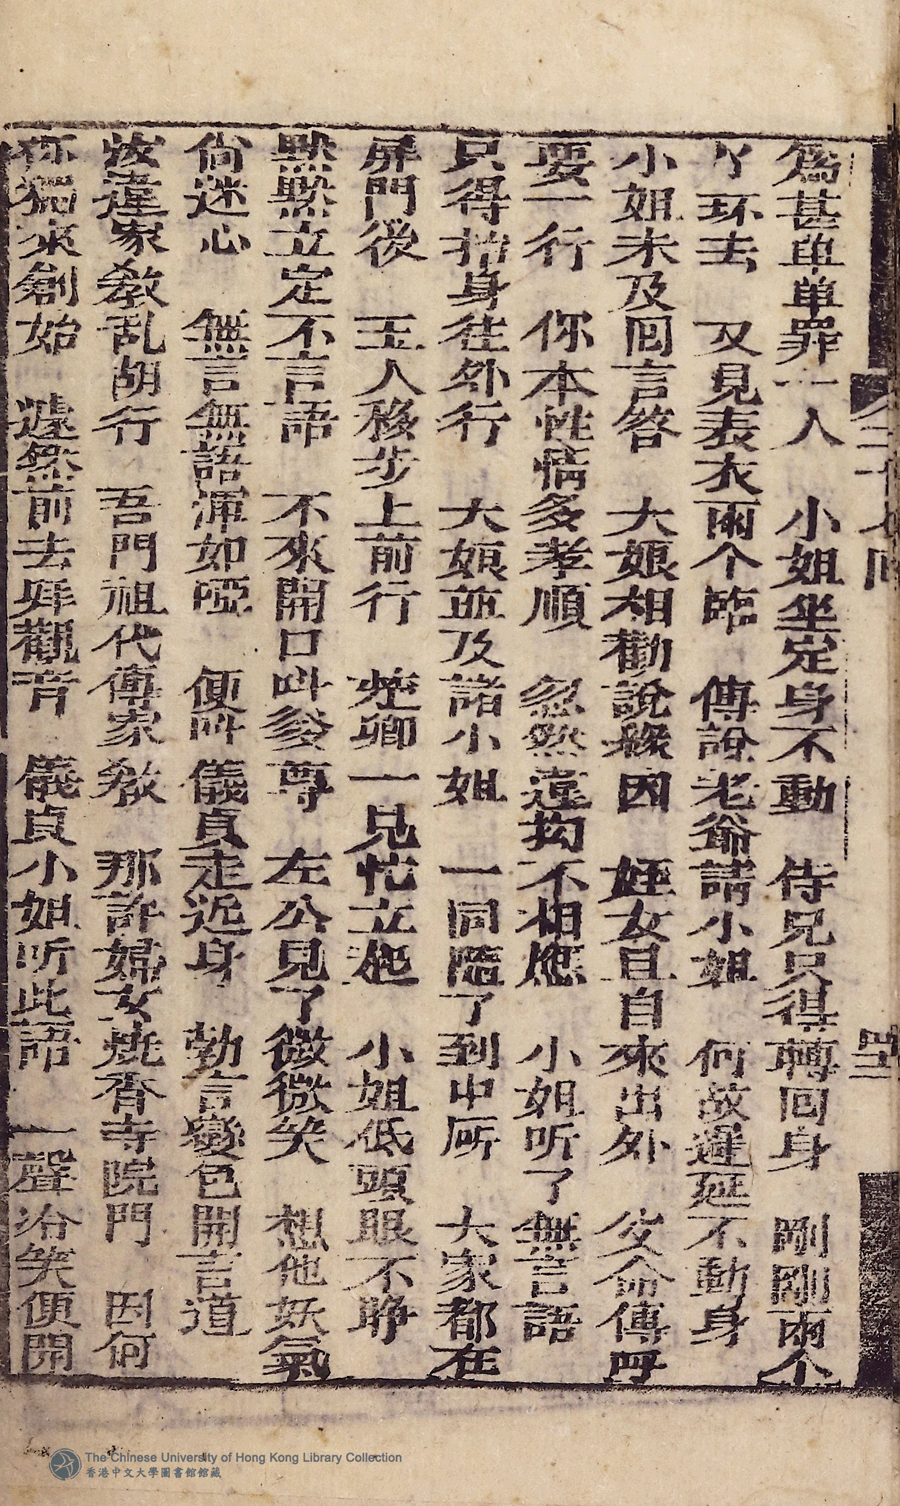 為甚单单罪一人 小姐坐定身不動 侍兒只得轉回身 剛剛兩个
丫环去 又見表衣兩个臨 傳說老爺請小姐 何故遲延不動身
小姐未及回言答 大娘相勸說緣因 姪女且自來出外 父命傳呼
要一行 你本性情多孝順 忽然違拗不相應 小姐听了無言語
只得抬身往外行 大娘並及諸小姐 一同隨了到中所 大家都在
屏門後 玉人移步上前行 楚卿一見忙立起 小姐低頭眼不睁
黙黙立定不言語 不來開口呌爹尊 左公見了微微笑 想他妖氣
尙迷心 無言無語渾如啞 便呌儀貞走近身 勃言變色開言道
汝違家教乱胡行 吾門祖代傳家教 那許婦女燒香寺院門 因何
你獨來創始 遽然前去拜觀音 儀貞小姐听此語 一聲冷笑便開
二十七回
The Chinese University of Hong Kong Library Collection
香港中文大學圖書館館藏